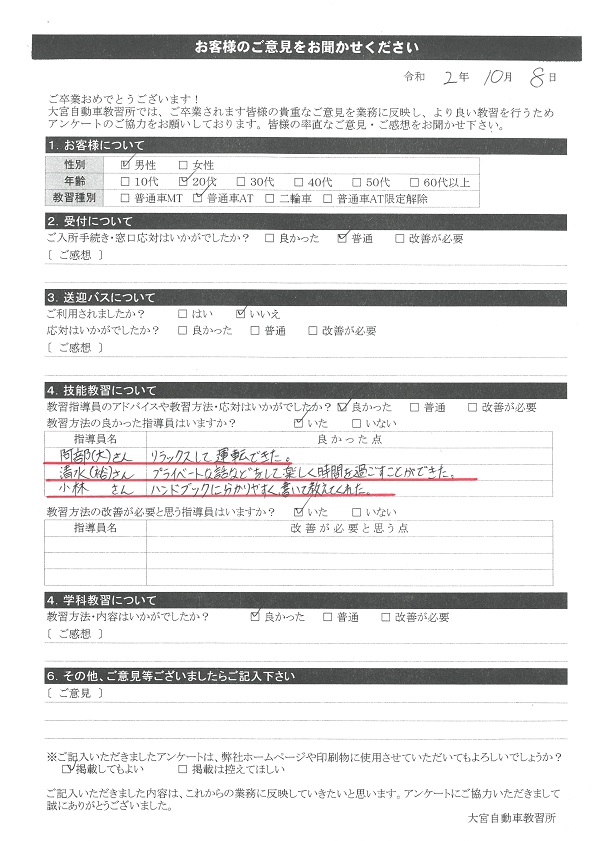 お客様のご意見をお聞かせください
令和 2年 10月 8日
ご卒業おめでとうございます！
大宮自動車教習所では、ご卒業されます皆様の貴重なご意見を業務に反映し、より良い教習を行うため
アンケートのご協力をお願いしております。皆様の率直なご意見・ご感想をお聞かせ下さい。
1. お客様について
性別 ☑男性 □女性
年齢 □10代 ☑20代 □30代 □40代 □50代 □60代以上
教習種別 □普通車MT ☑普通車AT □二輪車 □普通車AT限定解除
2. 受付について
ご入所手続き・窓口応対はいかがでしたか？ □良かった ☑普通 □改善が必要
〔 ご感想 〕
3. 送迎バスについて
ご利用されましたか？ □はい ☑いいえ
応対はいかがでしたか？ □良かった □普通 □改善が必要
〔 ご感想 〕
4. 技能教習について
教習指導員のアドバイスや教習方法・応対はいかがでしたか？ ☑良かった □普通 □改善が必要
教習方法の良かった指導員はいますか？ ☑いた □いない
指導員名 良かった点
阿部(大)さん リラックスして運転できた。
清水(裕)さん プライベートな話などをして楽しく時間を過ごすことができた。
小林 さん ハンドブックに分かりやすく書いて教えてくれた。
教習方法の改善が必要と思う指導員はいますか？ ☑いた □いない
指導員名 改善が必要と思う点
4. 学科教習について
教習方法・内容はいかがでしたか？ ☑良かった □普通 □改善が必要
〔 ご感想 〕
6. その他、ご意見等ございましたらご記入下さい
〔 ご意見 〕
※ご記入いただきましたアンケートは、弊社ホームページや印刷物に使用させていただいてもよろしいでしょうか？
☑掲載してもよい □掲載は控えてほしい
ご記入いただきました内容は、これからの業務に反映していきたいと思います。アンケートにご協力いただきまして
誠にありがとうございました。
大宮自動車教習所